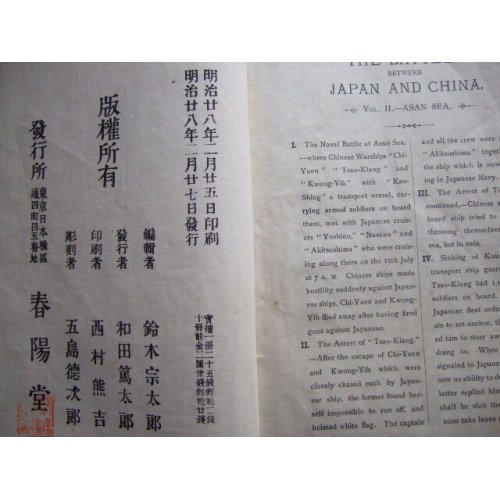 明治廿八年二月廿五日印刷
明治廿八年二月廿七日發行
編輯者 鈴木宗太郎
發行者 和田篤太郎
印刷者 西村熊吉
彫刻者 五島徳次郎
版權所有
發行所 東京日本橋區通四町目五番地 春陽堂
THE BATTLE
BETWEEN
JAPAN AND CHINA.
VOL. II.—ASAN SEA.
I. The Naval Battle at Asan Sea.
—where Chinese Warships "Chi-
Yuen" "Tsao-Kiang" and
"Kwong-Yih" with "Kau-
Shing" a transport vessel, car-
rying armed soldiers on board
them, met with Japanese cruis-
ers "Yoshino," "Naniwa" and
"Akitsushima" who were cruis-
ing along there on the 25th July
at 7 A. M. Chinese ships made
hostility suddenly against Japan-
ese ships, Chi-Yuen and Kwong-
Yih flied away after having fired
guns against Japanese.
II. The Arrest of "Tsao-Kiang."
—After the escape of Chi-Yuen
and Kwong-Yih which were
closely chased each by Japan-
ese ship, the former found her-
self impossible to run off, and
hoisted white flag. The captain
and all the crew were
"Akitsushima" toget
the ship which is now
ing in Japanese Navy.
III. The Arrest of T
continued, Chinese s
board ship tried to
throwing themselve
sea, but in vain.
IV. Sinking of Kaw
transport ship guar
Tsao-Kiang had 1.
soldiers on board.
Japanese fleet ordu
ain to set anchor,
ed him to steer aw
doing so. When
signaled to Japane
now no ability to d
latter replied him
shall be shot the
soon take leave o